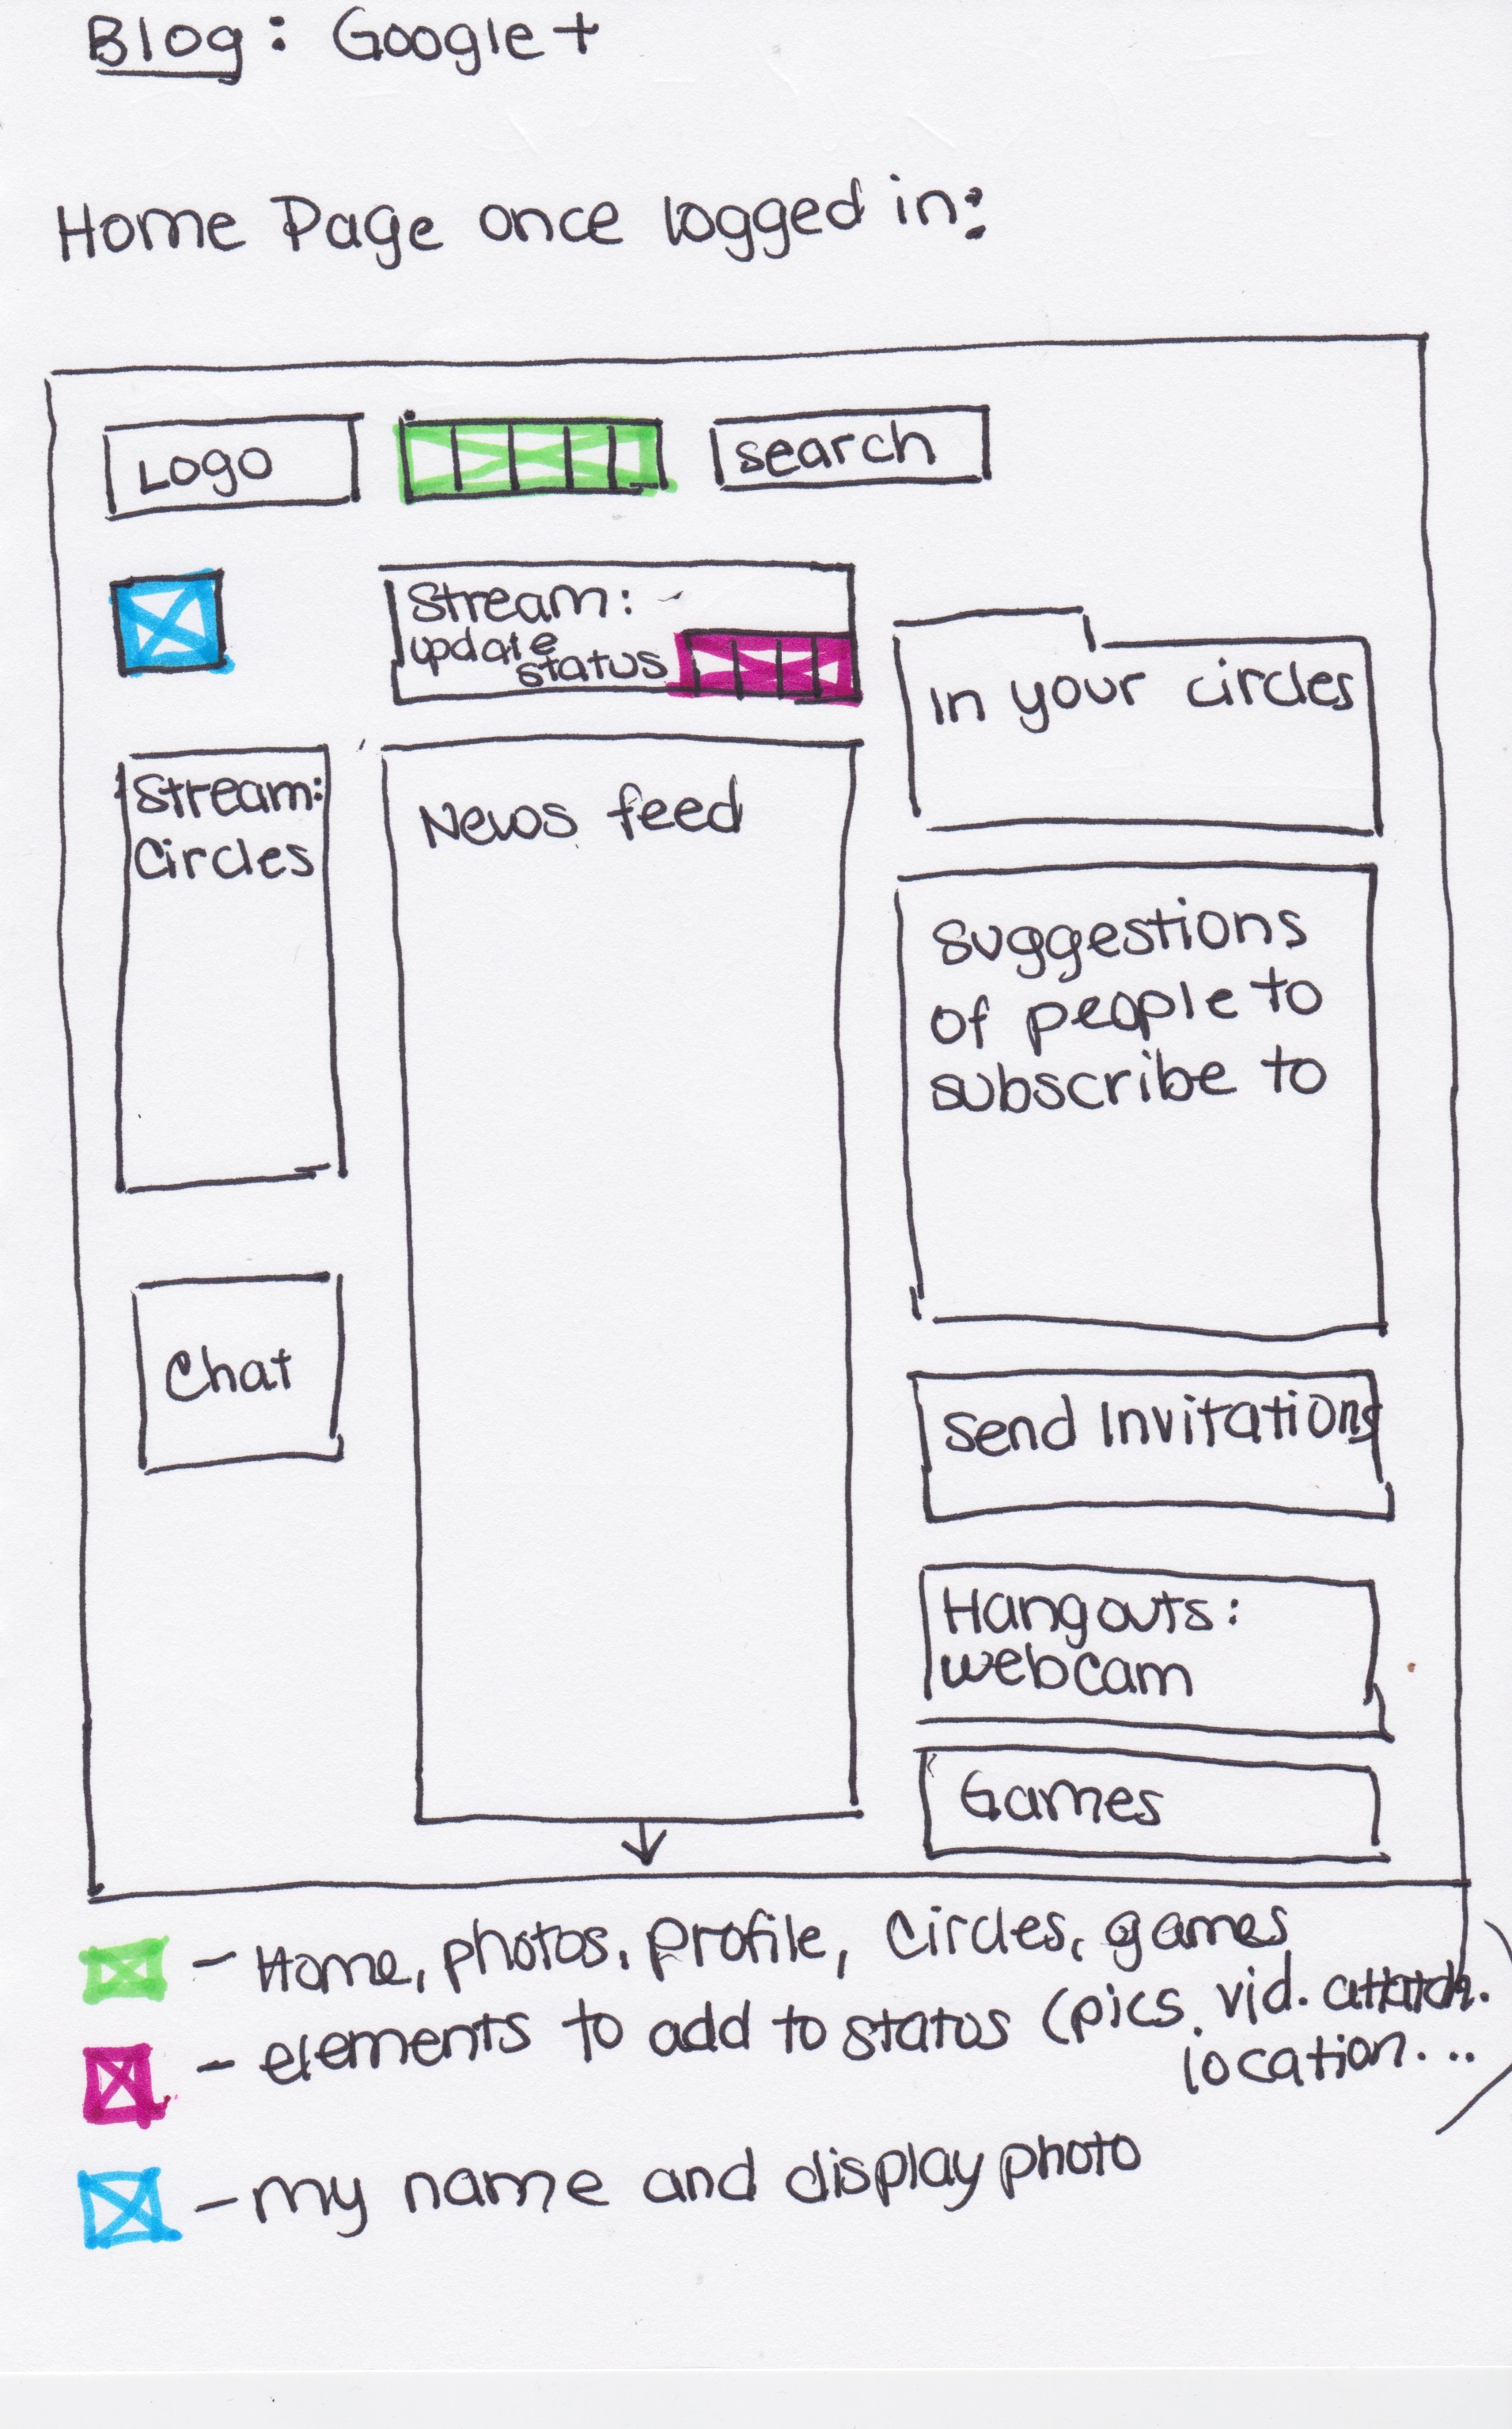 Blog: Google+
Home Page once logged in:
Logo
search
Stream:
update
status
in your circles
Stream:
Circles
News feed
Suggestions
of people to
subscribe to
Chat
Send Invitations
Hangouts:
webcam
Games
- Home, photos, profile, circles, games
- elements to add to status (pics, vid. attatch.
location...)
- my name and display photo